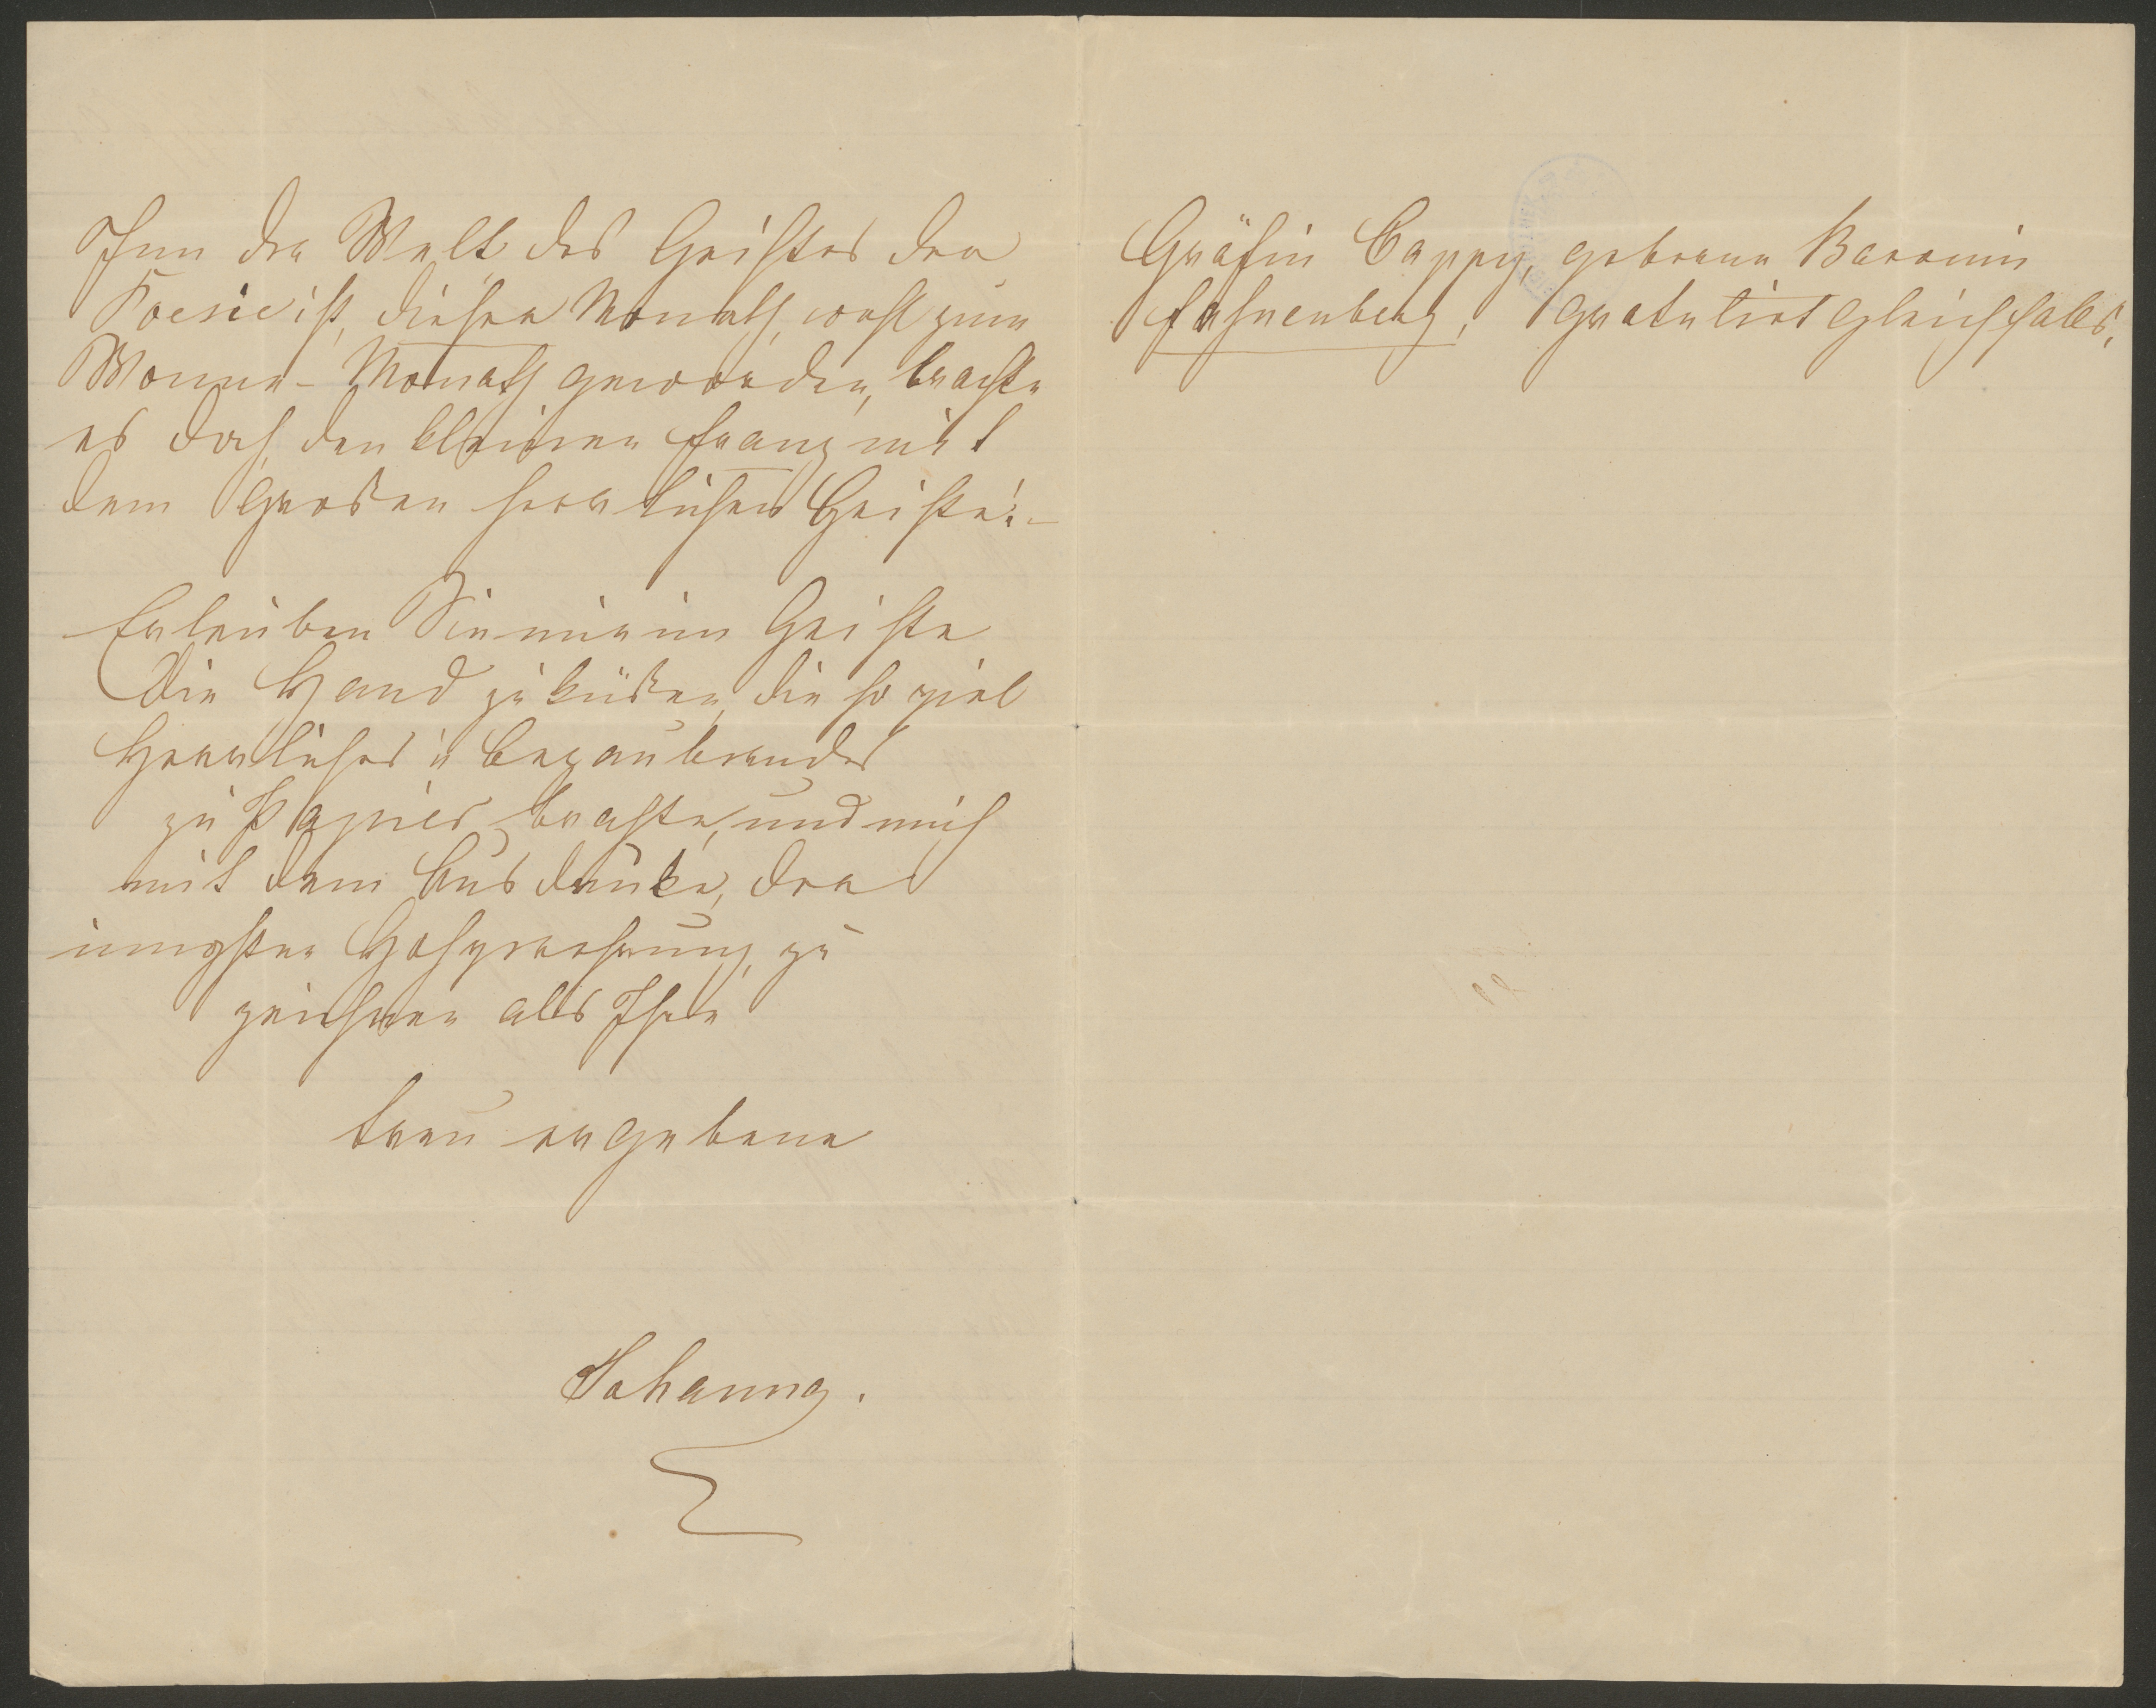 Ihm der Welt des Geistes der
Poesie ist, dieser Monath, wohl zum
Wonne-Monath geworden, brachte
es doch den kleinen Franz mit
dem großen herrlichen Geiste! –
Erlauben Sie mir im Geiste
Die Hand zu küßen, die so viel
Herrliches u Bezauberndes
zu Papier brachte, und mich
mit dem Ausdrucke, der
innigsten Hochverehrung, zu
zeichnen als Ihre
treu ergebene
Johanna.
Gräfin Cappy, geborene Baronin
Fahnenberg, gratulirt gleichfalls.